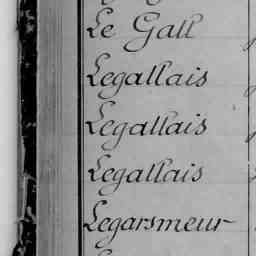 Le Gall
Legallais
Legallais
Legallais
Legarsmeur